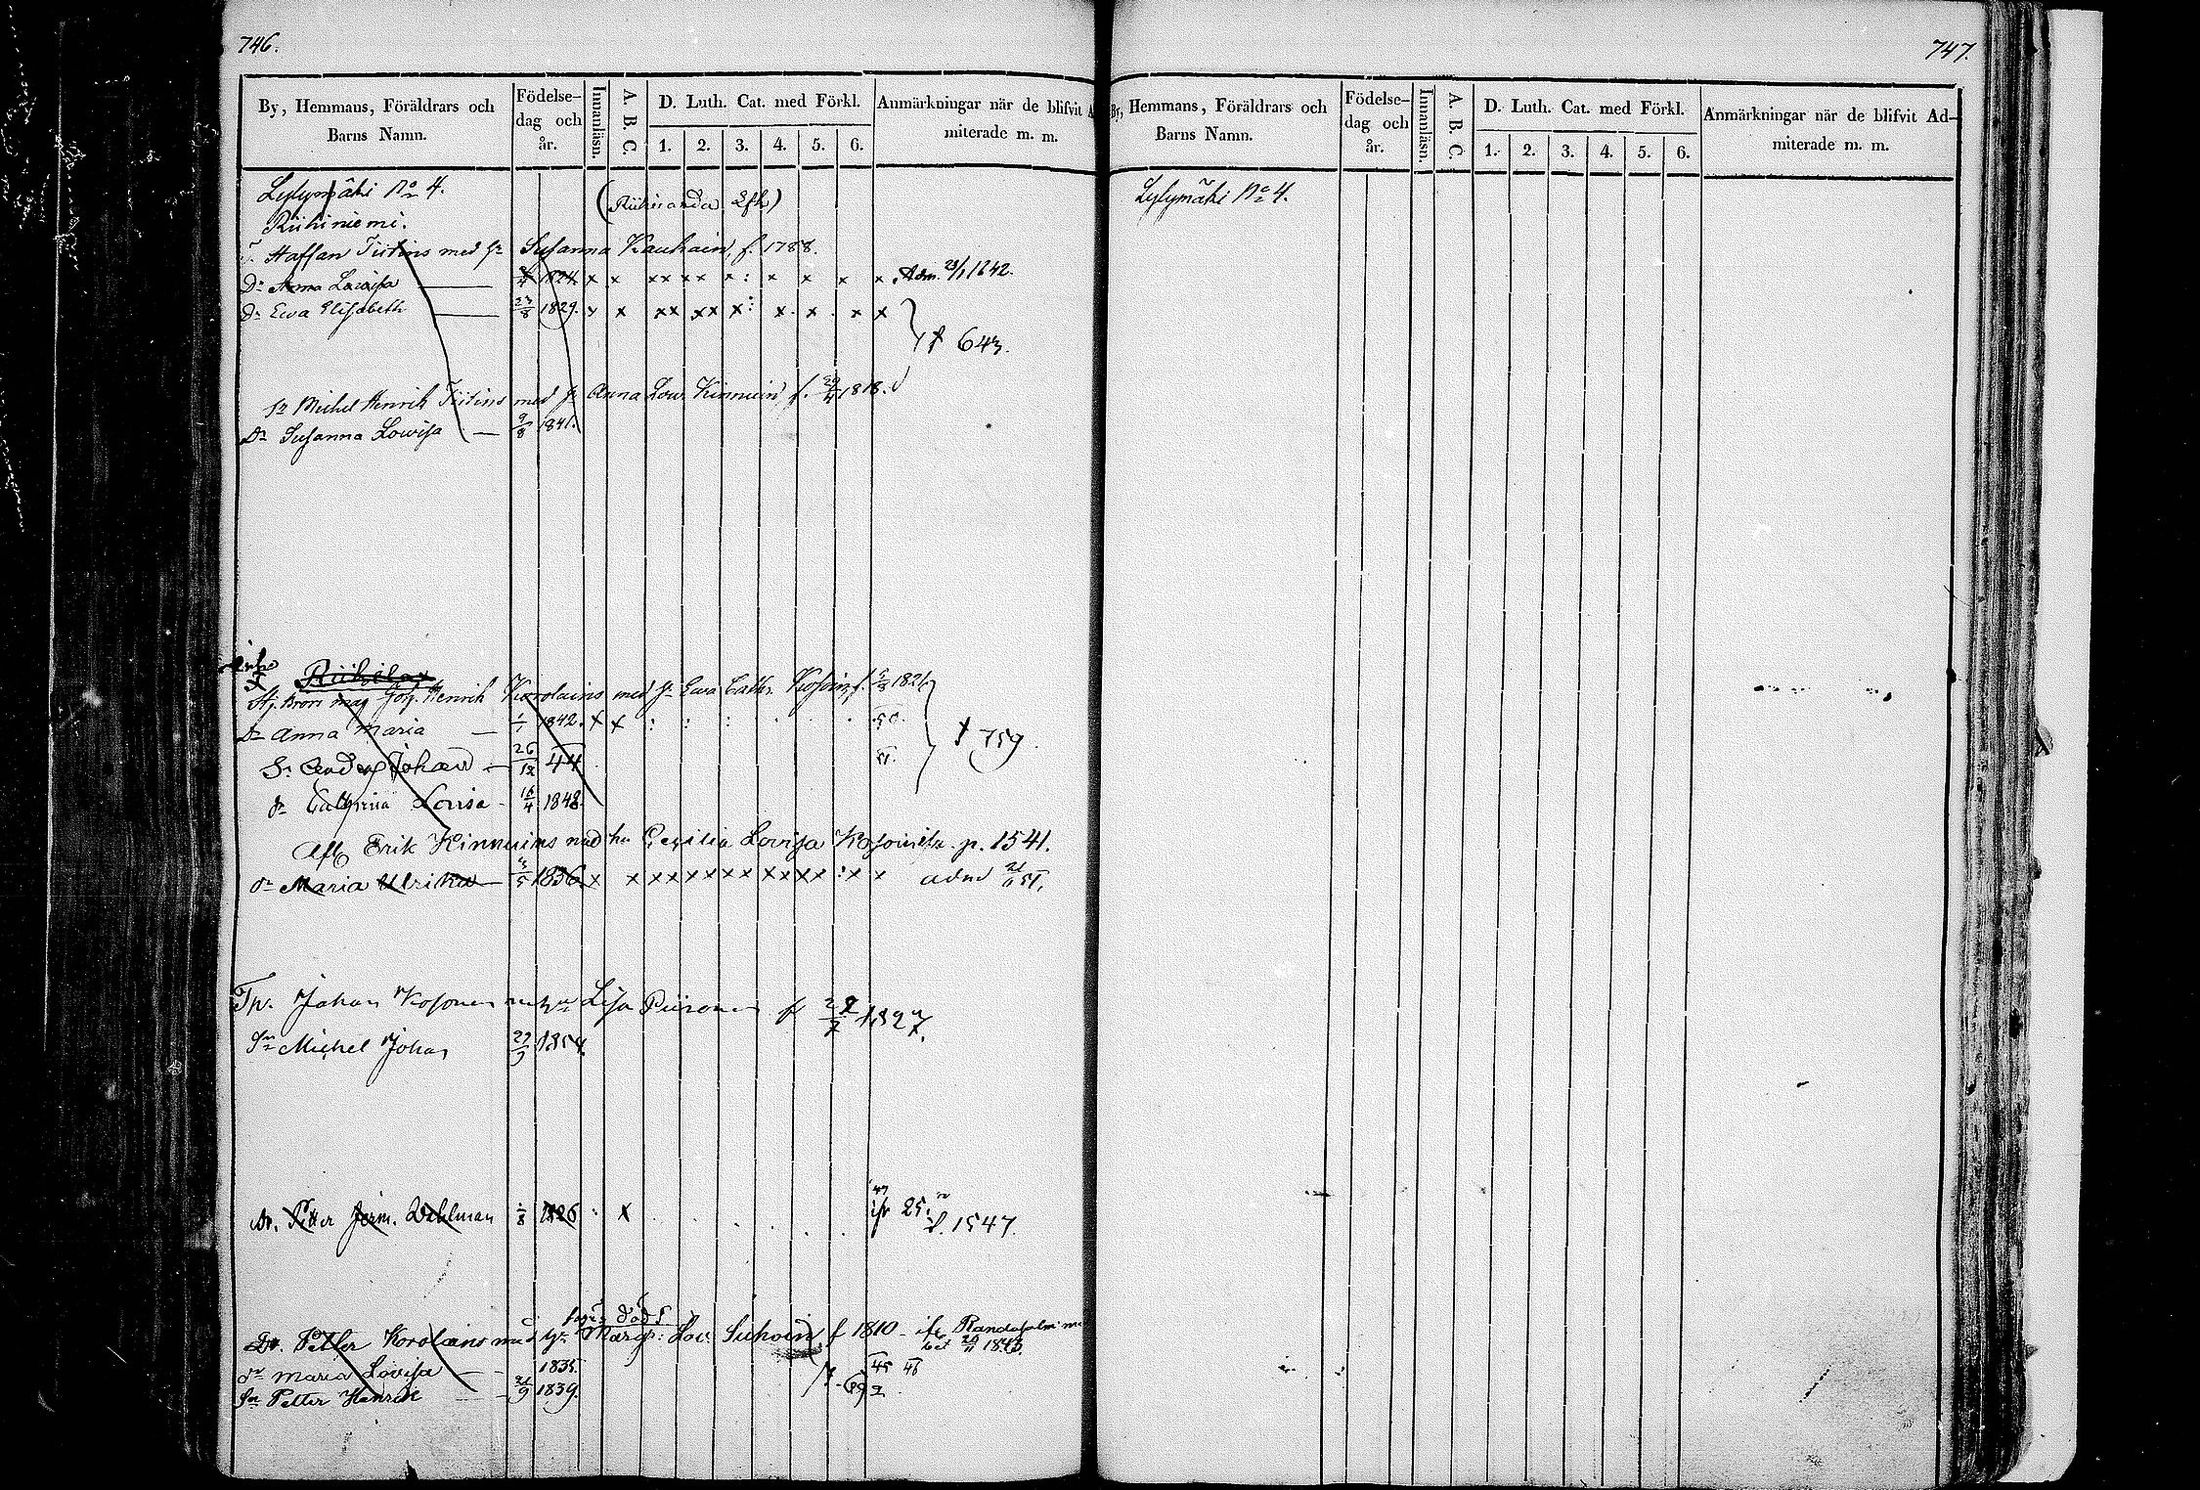 746.
By, Hemmans, Föräldrars och Barns Namn.
Födelse-dag och år.
Innanläsn.
A. B. C.
D. Luth. Cat. med Förkl.
1. 2. 3. 4. 5. 6.
Anmärkningar när de blifvit Admiterade m. m.
Lylymäki No 4.
Riihiniemi.
Staffan Tiitins med hu Susanna Kauhain, f. 1788.
Dr Anna Lovisa — 1824. x x x x x x x : x x x x Adm. 1842.
Dr Ewa Elisabeth — 23/8 1829. x x x x x x x : x . x . x x
f 643.
Sn Michel Henrik Tiitins med hu Anna Low. Kinnuin, f. 1818.
Dr Susanna Lowisa — 9/8 1841.
Riihelax
Joh. Henrik Korolains med hu Ewa Cath. Kosoin, f. 1821
Dr Anna Maria — 1842. x x : : :
50.
Sn Anders Johan — 26/12 44
51.
f 759.
dr Cathrina Lovisa - 16/4 1848.
Afl. Erik Kinnuins med hu Cecilia Lovisa Kosoin p. 1541.
dr Maria Ulrika — 1836 x x x x x x x x x x x x : x x adm 51.
Johan Kosonen m hu Lisa Piironen f 1827.
Sn Michel Johan 1854.
Dr. Petter Jerm. Dahlman 1/8 1826 : x
ifr 25.
p. 1547.
död
Dr. Petter Korolains med hu Margr: Lov. Suhoin f 1810 - ifr Randasalmi m
bet 1843.
dr Maria Lovisa — 1835.
45 46
Sn Petter Henrik — 21/9 1839.
747.
By, Hemmans, Föräldrars och Barns Namn.
Födelse-dag och år.
Innanläsn.
A. B. C.
D. Luth. Cat. med Förkl.
1. 2. 3. 4. 5. 6.
Anmärkningar när de blifvit Admiterade m. m.
Lylymäki No 4.